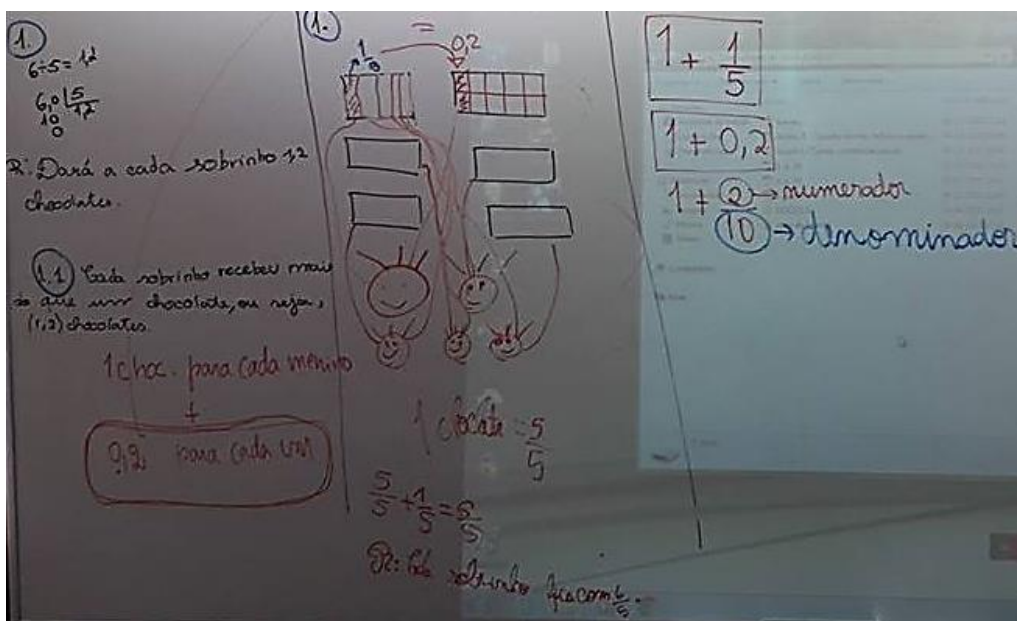 1.
6÷5= 1,2
6,0 | 5
10 1,2
0
R: Dará a cada sobrinho 1,2
chocolates.
1.1) Cada sobrinho recebeu mais
do que um chocolate, ou seja,
(1,2) chocolates.
1 choc. para cada menino
+
0,2 para cada um
1.
=
1/5
0,2
1 chocolate = 5/5
5/5 + 1/5 = 6/5
R: Cada sobrinho fica com 6/5.
1 + 1/5
1 + 0,2
1 + 2 → numerador
10 → denominador